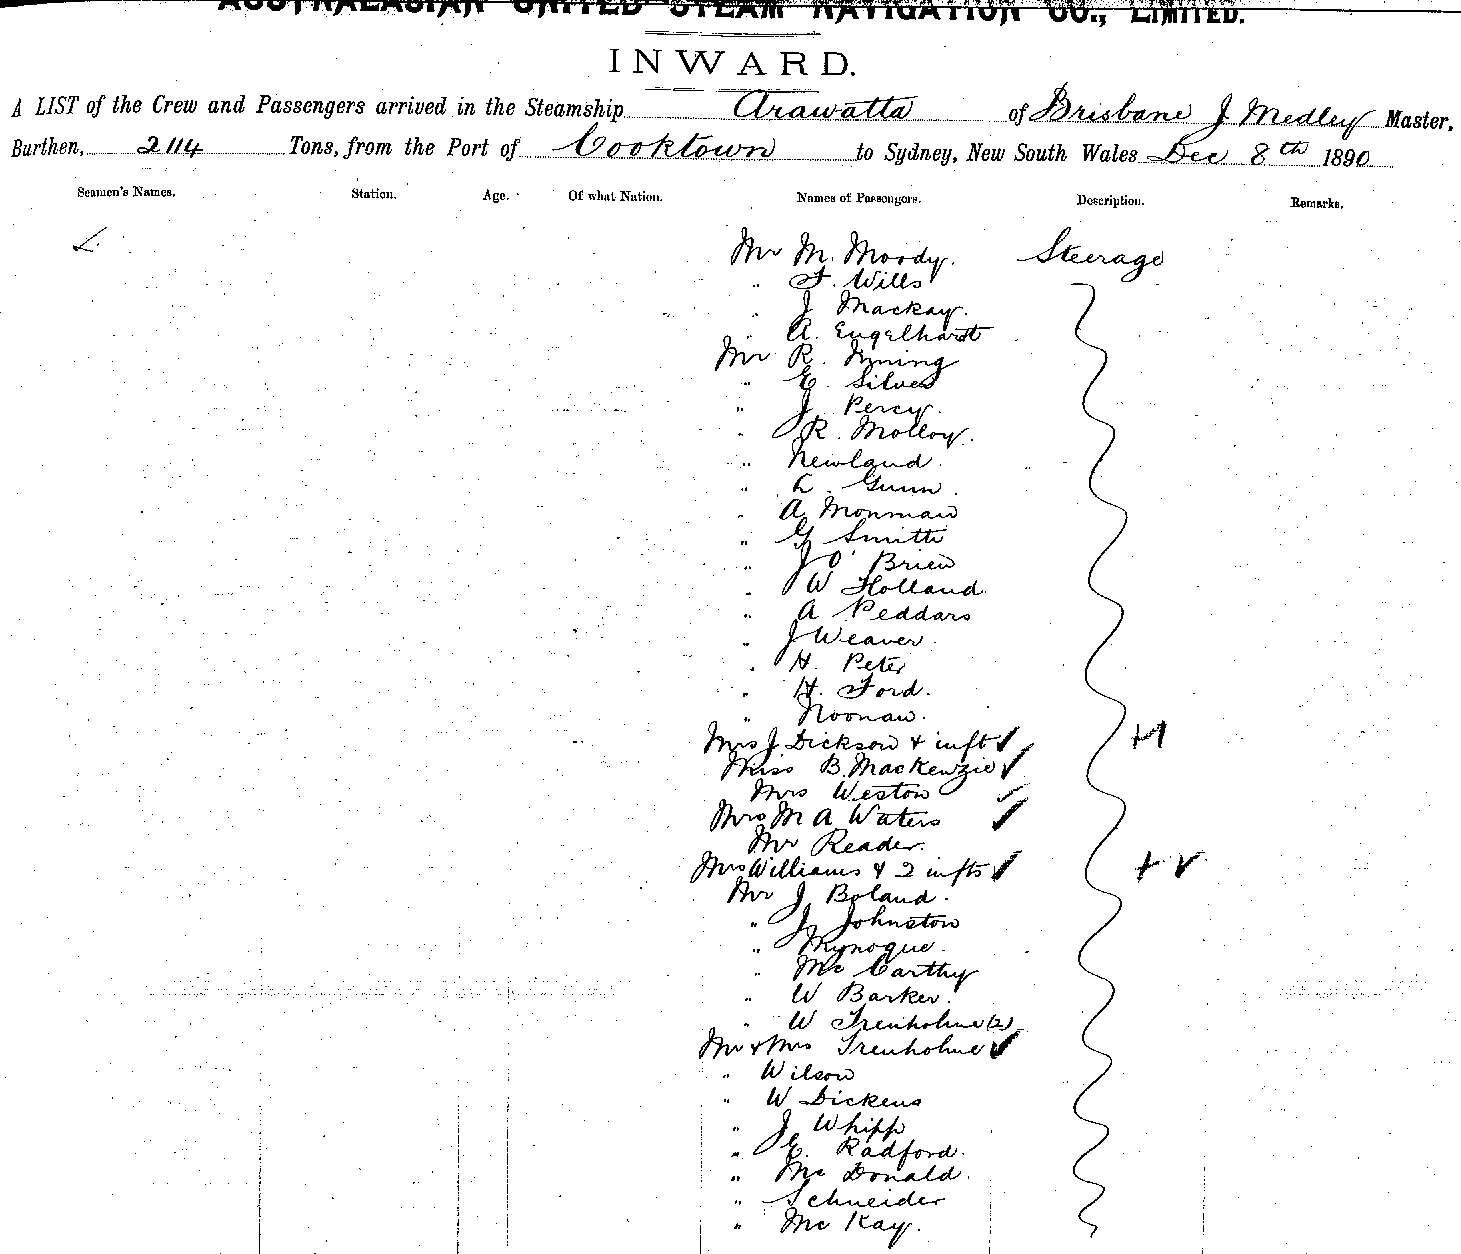 AUSTRALASIAN UNITED STEAM NAVIGATION CO., LIMITED.
INWARD.
A LIST of the Crew and Passengers arrived in the Steamship Arawatta of Brisbane J Medley Master,
Burthen, 2114 Tons, from the Port of Cooktown to Sydney, New South Wales Dec 8th 1890
Seamen's Names. Station. Age. Of what Nation. Names of Passengers. Description. Remarks.
Mr M. Moody. Steerage
" F. Wills
" J Mackay.
" A. Engelhardt
Mr R.
" E. Silver
" J. Percy.
" R. Molloy.
" Newland.
" L. Gunn.
" A Monman
" G Smith
" J O'Brien
" W Holland.
" A Peddars
" J Weaver.
" H. Peter
" H. Ford.
" Noonan.
Mrs J Dickson & inft ✓
Miss B. Mackenzie ✓
Mrs Weston ✓
Mrs M A Waters ✓
Mr Reader.
Mrs Williams & 2 infts ✓ + ✓
Mr J. Boland.
" J. Johnston
" Mynogue.
" Mc Carthy
" W Barker.
" W Trenholme (2)
Mr & Mrs Trenholme ✓
" Wilson
" W Dickens
" J Whipp
" E. Radford.
" Mc Donald.
" Schneider
" Mc Kay.